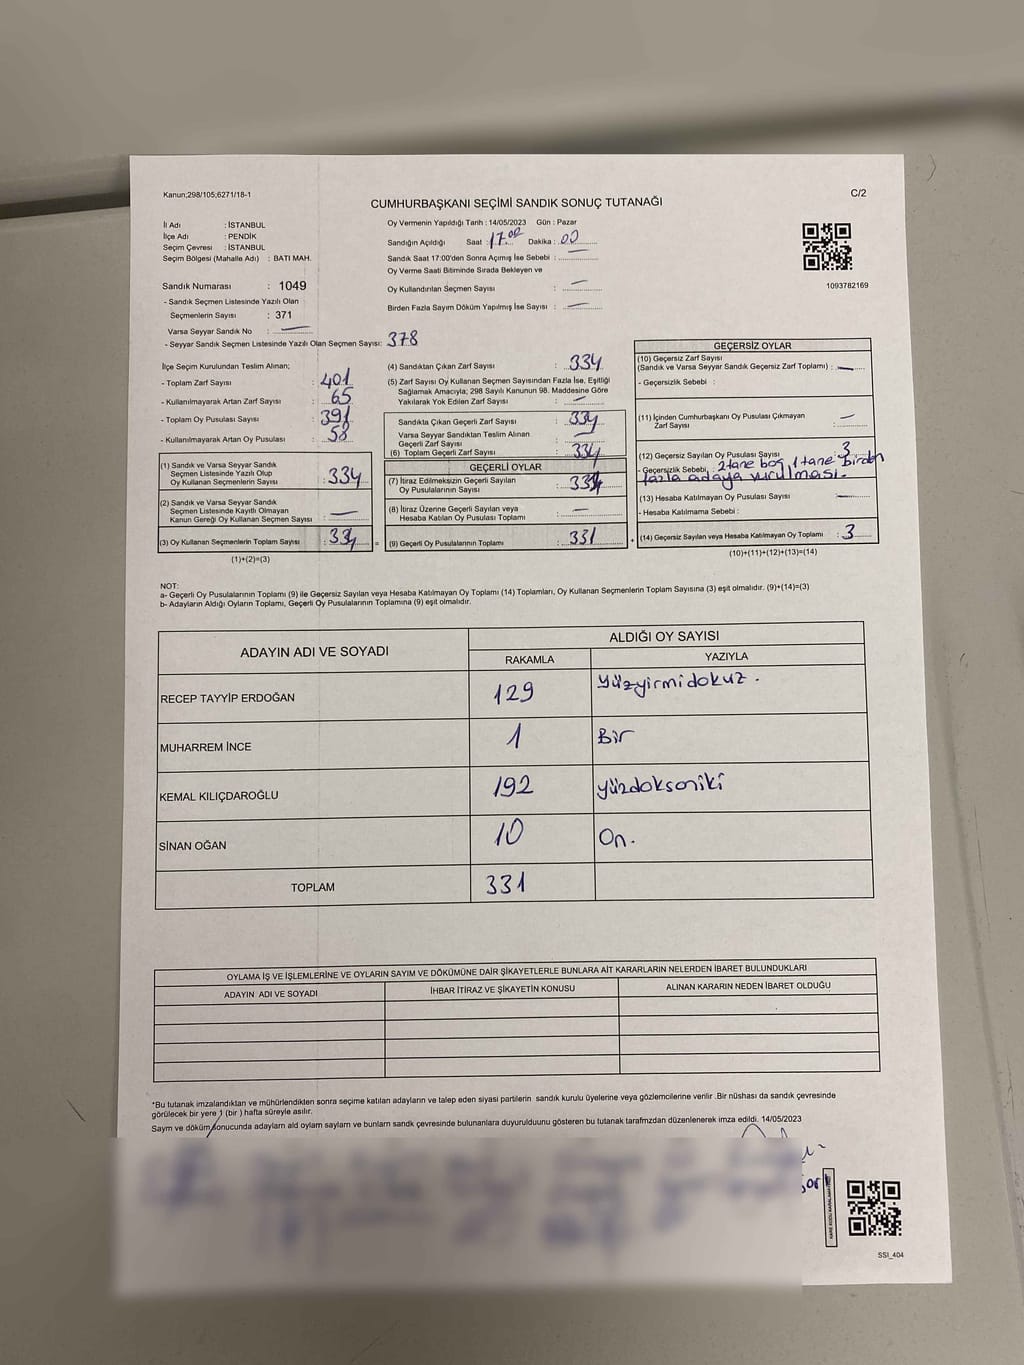 Kanun;298/105;6271/18-1
C/2
CUMHURBAŞKANI SEÇİMİ SANDIK SONUÇ TUTANAĞI
İl Adı : İSTANBUL
İlçe Adı : PENDİK
Seçim Çevresi : İSTANBUL
Seçim Bölgesi (Mahalle Adı) : BATI MAH.
Sandık Numarası : 1049
- Sandık Seçmen Listesinde Yazılı Olan
Seçmenlerin Sayısı : 371
Varsa Seyyar Sandık No :
- Seyyar Sandık Seçmen Listesinde Yazılı Olan Seçmen Sayısı: 378
Oy Vermenin Yapıldığı Tarih : 14/05/2023 Gün : Pazar
Sandığın Açıldığı Saat : 17.00 Dakika : 00
Sandık Saat 17:00'den Sonra Açımış İse Sebebi :
Oy Verme Saati Bitiminde Sırada Bekleyen ve
Oy Kullandırılan Seçmen Sayısı :
Birden Fazla Sayım Döküm Yapılmış İse Sayısı :
1093782169
İlçe Seçim Kurulundan Teslim Alınan;
- Toplam Zarf Sayısı : 401
- Kullanılmayarak Artan Zarf Sayısı : 65
- Toplam Oy Pusulası Sayısı : 391
- Kullanılmayarak Artan Oy Pusulası : 58
(1) Sandık ve Varsa Seyyar Sandık
Seçmen Listesinde Yazılı Olup
Oy Kullanan Seçmenlerin Sayısı : 334
(2) Sandık ve Varsa Seyyar Sandık
Seçmen Listesinde Kayıtlı Olmayan
Kanun Gereği Oy Kullanan Seçmen Sayısı :
(3) Oy Kullanan Seçmenlerin Toplam Sayısı : 334 =
(1)+(2)=(3)
(4) Sandıktan Çıkan Zarf Sayısı : 334
(5) Zarf Sayısı Oy Kullanan Seçmen Sayısından Fazla İse, Eşitliği
Sağlamak Amacıyla; 298 Sayılı Kanunun 98. Maddesine Göre
Yakılarak Yok Edilen Zarf Sayısı :
Sandıkta Çıkan Geçerli Zarf Sayısı : 334
Varsa Seyyar Sandıktan Teslim Alınan
Geçerli Zarf Sayısı :
(6) Toplam Geçerli Zarf Sayısı : 334
GEÇERLİ OYLAR
(7) İtiraz Edilmeksizin Geçerli Sayılan
Oy Pusulalarının Sayısı :
(8) İtiraz Üzerine Geçerli Sayılan veya
Hesaba Katılan Oy Pusulası Toplamı :
(9) Geçerli Oy Pusulalarının Toplamı : 331 +
GEÇERSİZ OYLAR
(10) Geçersiz Zarf Sayısı
(Sandık ve Varsa Seyyar Sandık Geçersiz Zarf Toplamı) :
- Geçersizlik Sebebi :
(11) İçinden Cumhurbaşkanı Oy Pusulası Çıkmayan
Zarf Sayısı :
(12) Geçersiz Sayılan Oy Pusulası Sayısı 3
- Geçersizlik Sebebi 2 tane boş, 1 tane birden
fazla adaya vurulması.
(13) Hesaba Katılmayan Oy Pusulası Sayısı
- Hesaba Katılmama Sebebi :
(14) Geçersiz Sayılan veya Hesaba Katılmayan Oy Toplamı : 3
(10)+(11)+(12)+(13)=(14)
NOT:
a- Geçerli Oy Pusulalarının Toplamı (9) ile Geçersiz Sayılan veya Hesaba Katılmayan Oy Toplamı (14) Toplamları, Oy Kullanan Seçmenlerin Toplam Sayısına (3) eşit olmalıdır. (9)+(14)=(3)
b- Adayların Aldığı Oyların Toplamı, Geçerli Oy Pusulalarının Toplamına (9) eşit olmalıdır.
ADAYIN ADI VE SOYADI ALDIĞI OY SAYISI
RAKAMLA YAZIYLA
RECEP TAYYİP ERDOĞAN 129 yüzyirmidokuz.
MUHARREM İNCE 1 Bir
KEMAL KILIÇDAROĞLU 192 yüzdoksaniki
SİNAN OĞAN 10 On.
TOPLAM 331
OYLAMA İŞ VE İŞLEMLERİNE VE OYLARIN SAYIM VE DÖKÜMÜNE DAİR ŞİKAYETLERLE BUNLARA AİT KARARLARIN NELERDEN İBARET BULUNDUKLARI
ADAYIN ADI VE SOYADI İHBAR İTİRAZ VE ŞİKAYETİN KONUSU ALINAN KARARIN NEDEN İBARET OLDUĞU
*Bu tutanak imzalandıktan ve mühürlendikten sonra seçime katılan adayların ve talep eden siyasi partilerin sandık kurulu üyelerine veya gözlemcilerine verilir .Bir nüshası da sandık çevresinde
görülecek bir yere 1 (bir ) hafta süreyle asılır.
Saym ve döküm sonucunda adaylarn ald oylarn saylarn ve bunlarn sandk çevresinde bulunanlara duyurulduunu gösteren bu tutanak tarafmzdan düzenlenerek imza edildi. 14/05/2023
SSI_404